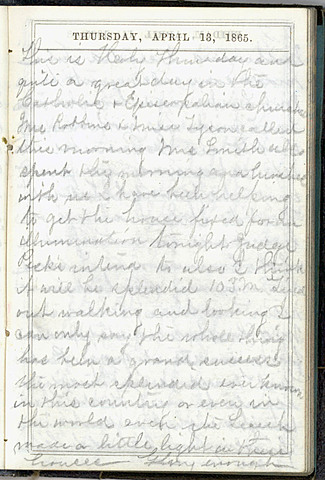 THURSDAY, APRIL 13, 1865.
This is Holy Thursday and
quit a great day in the
Catholic & Episcopalian churches
Mrs Robbins & Miss Tyson called
this morning Mrs Smith also
spent the morning and lunched
with us I have been helping
to get the house fixed for an
illumination tonight Judge
intend to also I think
it will be splendid 10 P.M.
out walking and looking I
can only say the whole thing
has been a grand success
the most splendid ever known
in this country or even in
the world even the
made a little light in
Glory enough